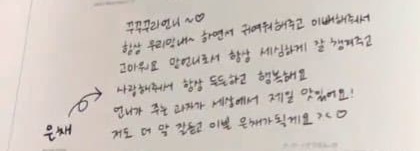 꾸꾸꾸라언니~♡
항상 우리막내~ 하면서 귀여워해주고 이뻐해주셔서
고마워요 맏언니로서 항상 세심하게 잘 챙겨주고
사랑해주셔서 항상 든든하고 행복해요
언니가 주는 과자가 세상에서 제일 맛있어요!
저도 더 말 잘듣고 이쁜 은채가될게요 ><♡
은채